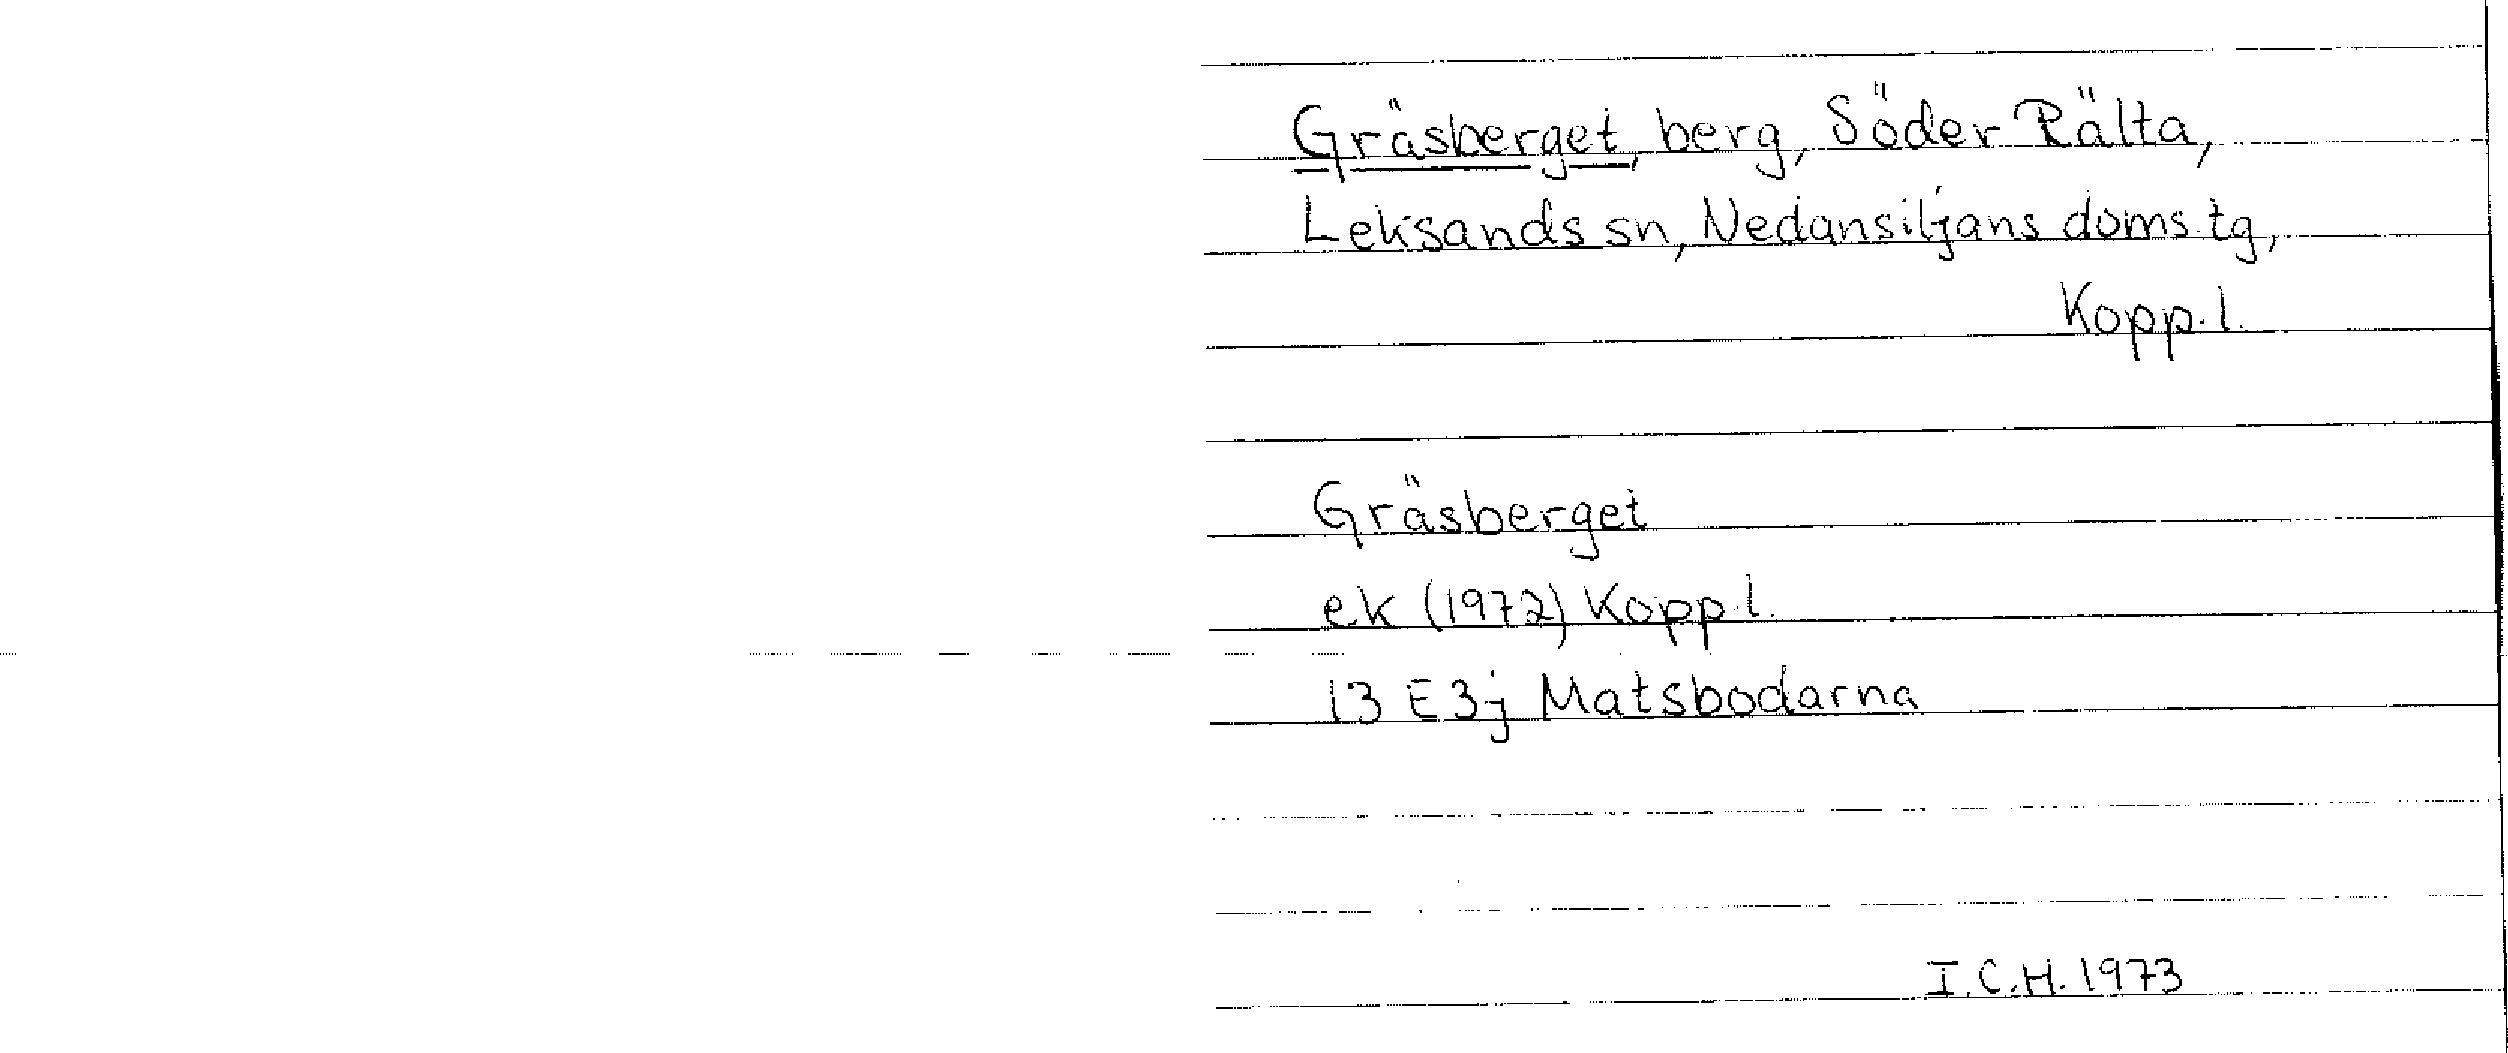 Gräsberget, berg, Söder Rälta,
Leksands sn, Nedansiljans doms.tg,
Kopp.l.
Gräsberget
ek (1972) Kopp.l.
13 E3j Matsbodarna
I.C.H. 1973